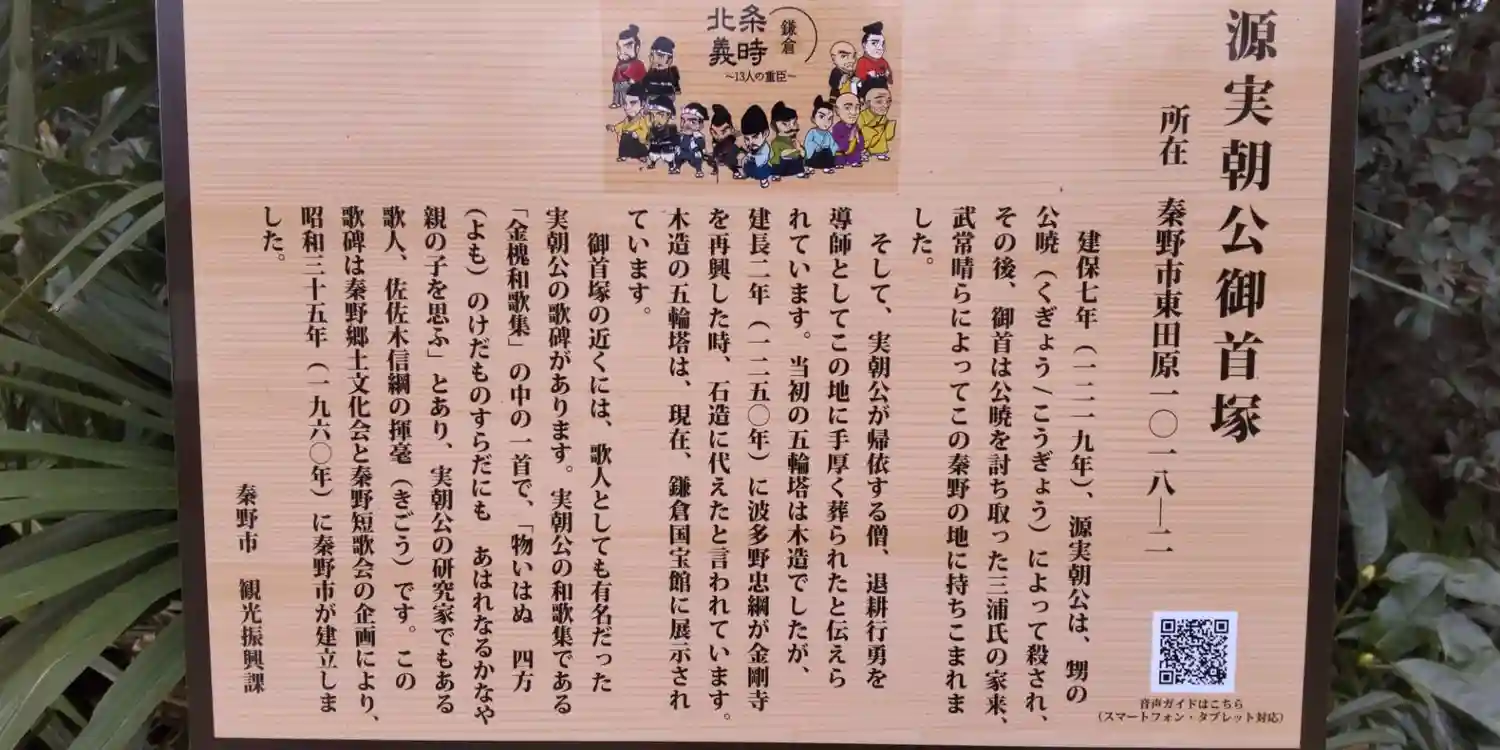 源実朝公御首塚
所在 秦野市東田原一〇一八―二
建保七年（一二一九年）、源実朝公は、甥の
公暁（くぎょう/こうぎょう）によって殺され、
その後、御首は公暁を討ち取った三浦氏の家来、
武常晴らによってこの秦野の地に持ちこまれま
した。
そして、実朝公が帰依する僧、退耕行勇を
導師としてこの地に手厚く葬られたと伝えら
れています。当初の五輪塔は木造でしたが、
建長二年（一二五〇年）に波多野忠綱が金剛寺
を再興した時、石造に代えたと言われています。
木造の五輪塔は、現在、鎌倉国宝館に展示され
ています。
御首塚の近くには、歌人としても有名だった
実朝公の歌碑があります。実朝公の和歌集である
「金槐和歌集」の中の一首で、「物いはぬ 四方
（よも）のけだものすらだにも あはれなるかなや
親の子を思ふ」とあり、実朝公の研究家でもある
歌人、佐佐木信綱の揮毫（きごう）です。この
歌碑は秦野郷土文化会と秦野短歌会の企画により、
昭和三十五年（一九六〇年）に秦野市が建立しま
した。
秦野市 観光振興課
鎌倉
北条
義時
～13人の重臣～
音声ガイドはこちら
（スマートフォン・タブレット対応）